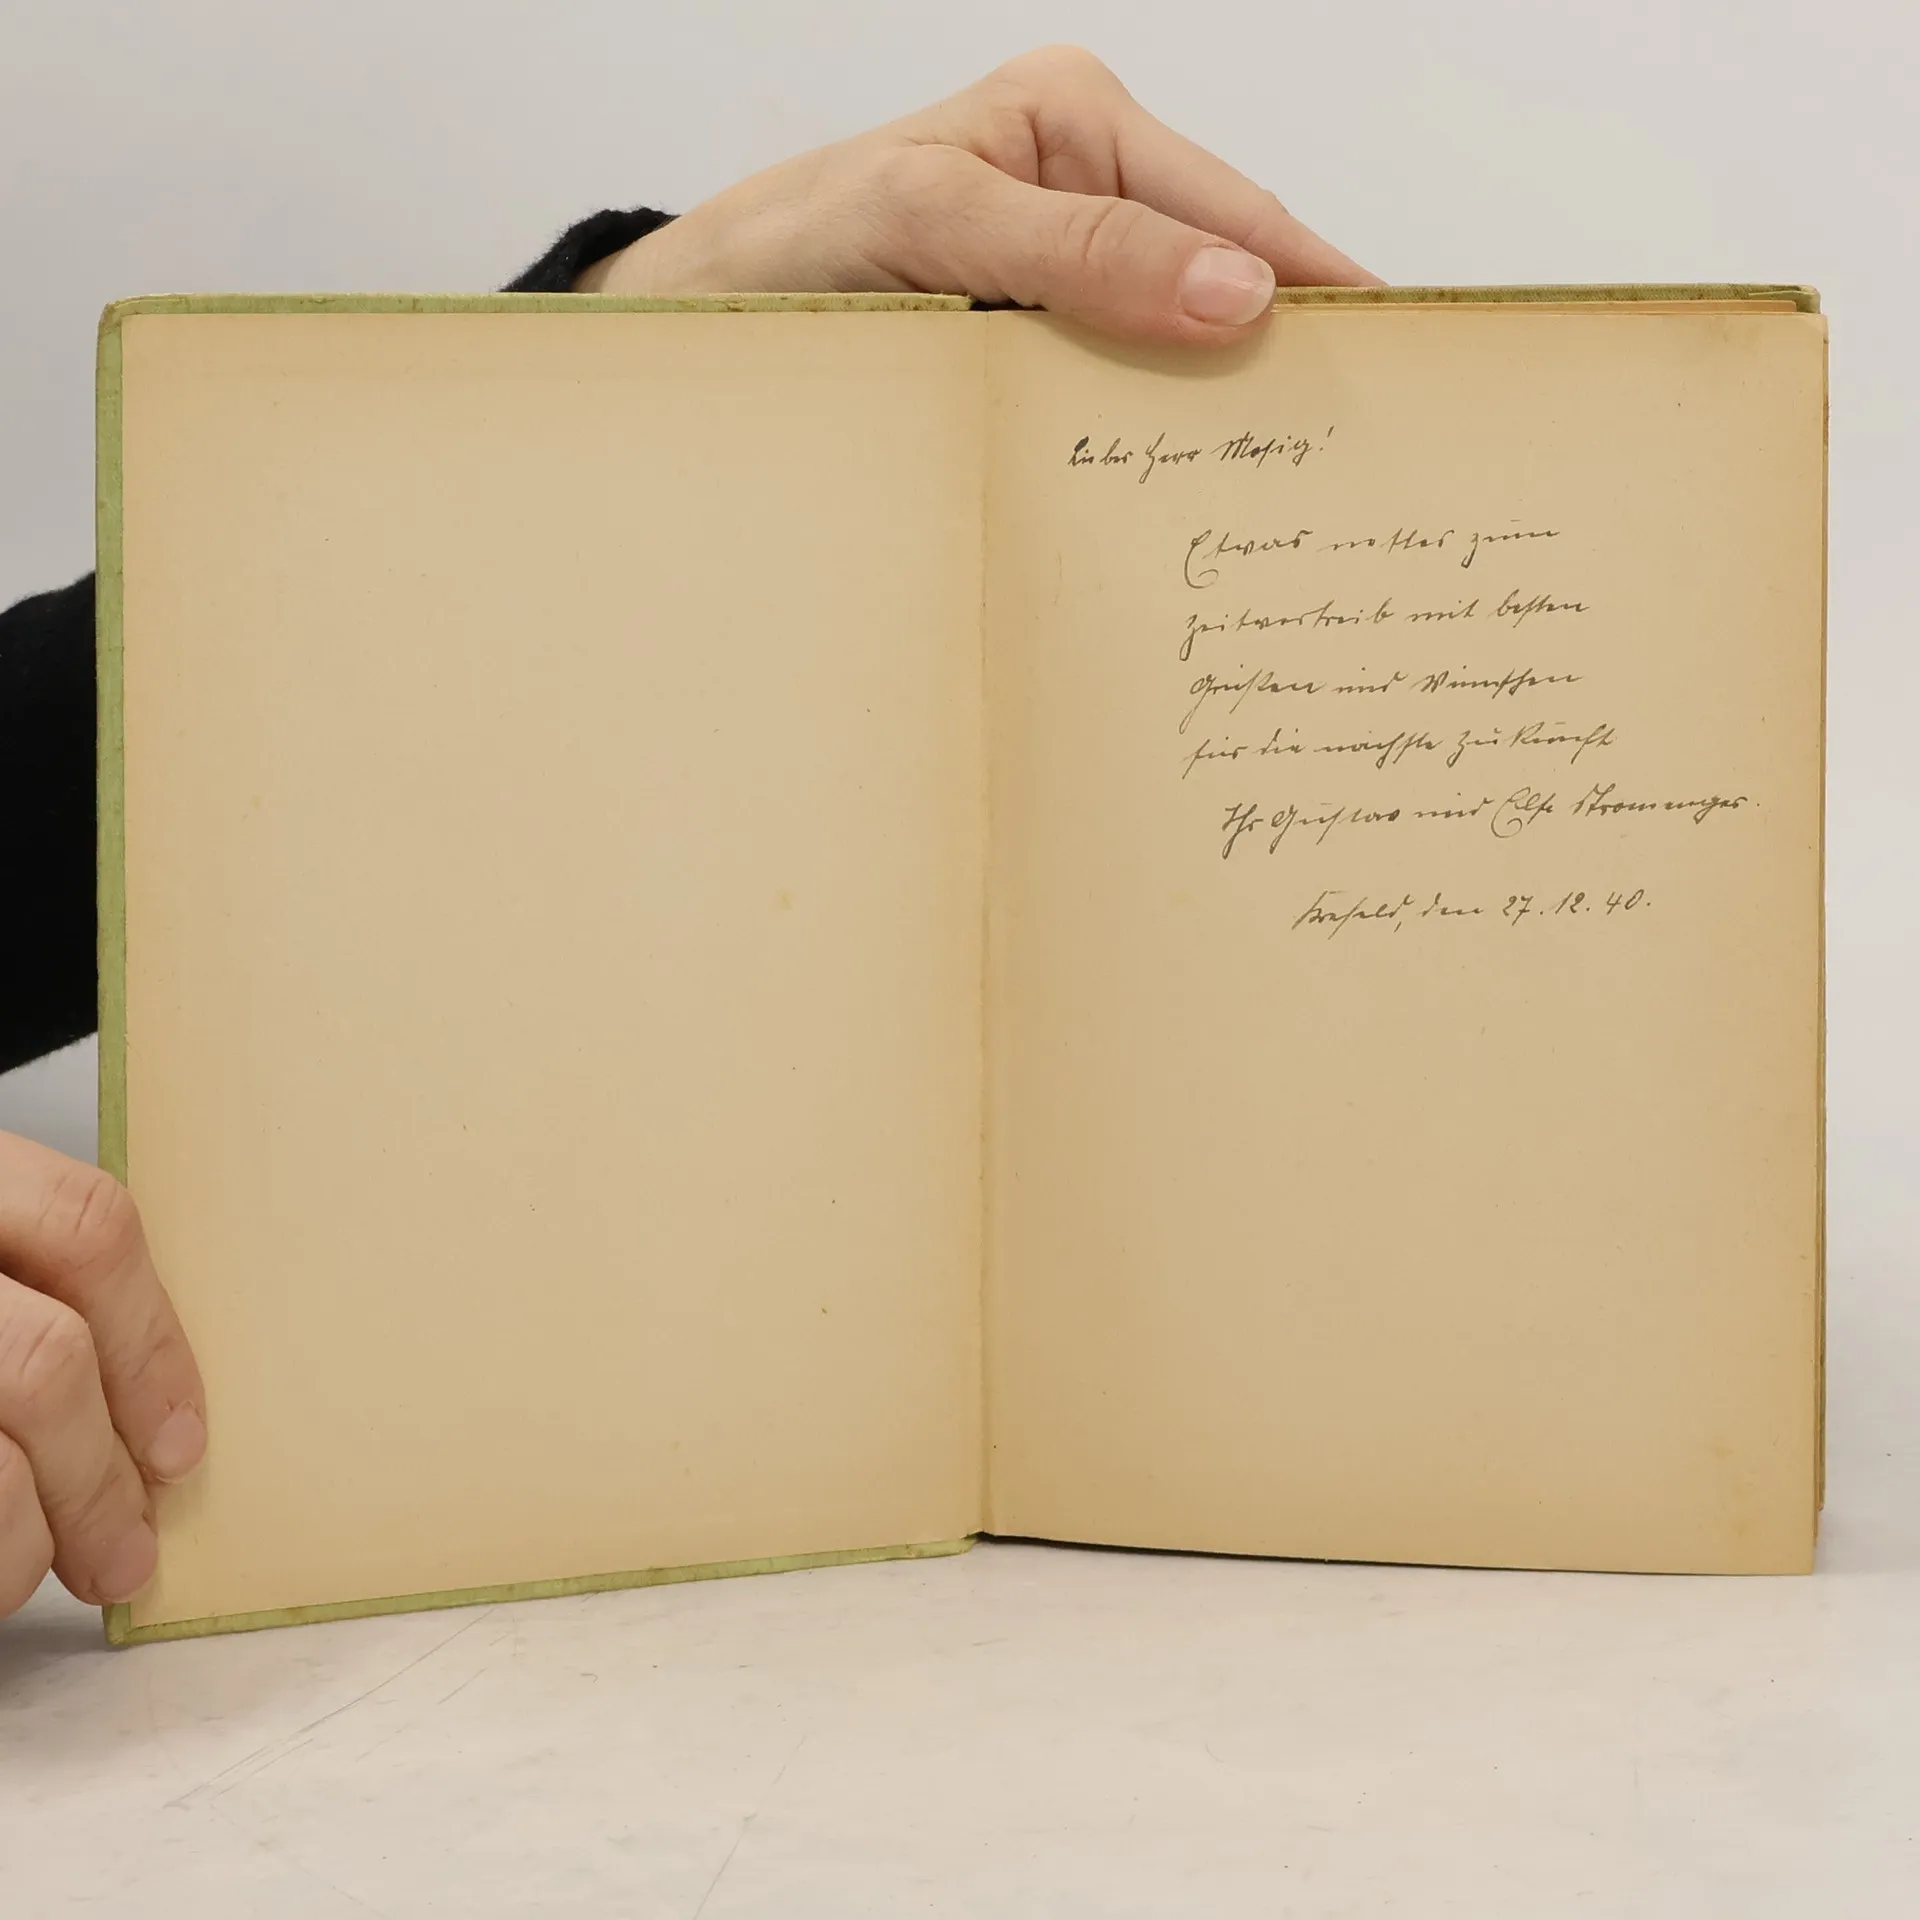 Lieber Herr Mosig!
Etwas nettes zum
Zeitvertreib mit besten
Grüßen und Wünschen
für die nächste Zukunft
Ihr Gustav und Else Stromenger.
Krefeld, den 27.12.40.